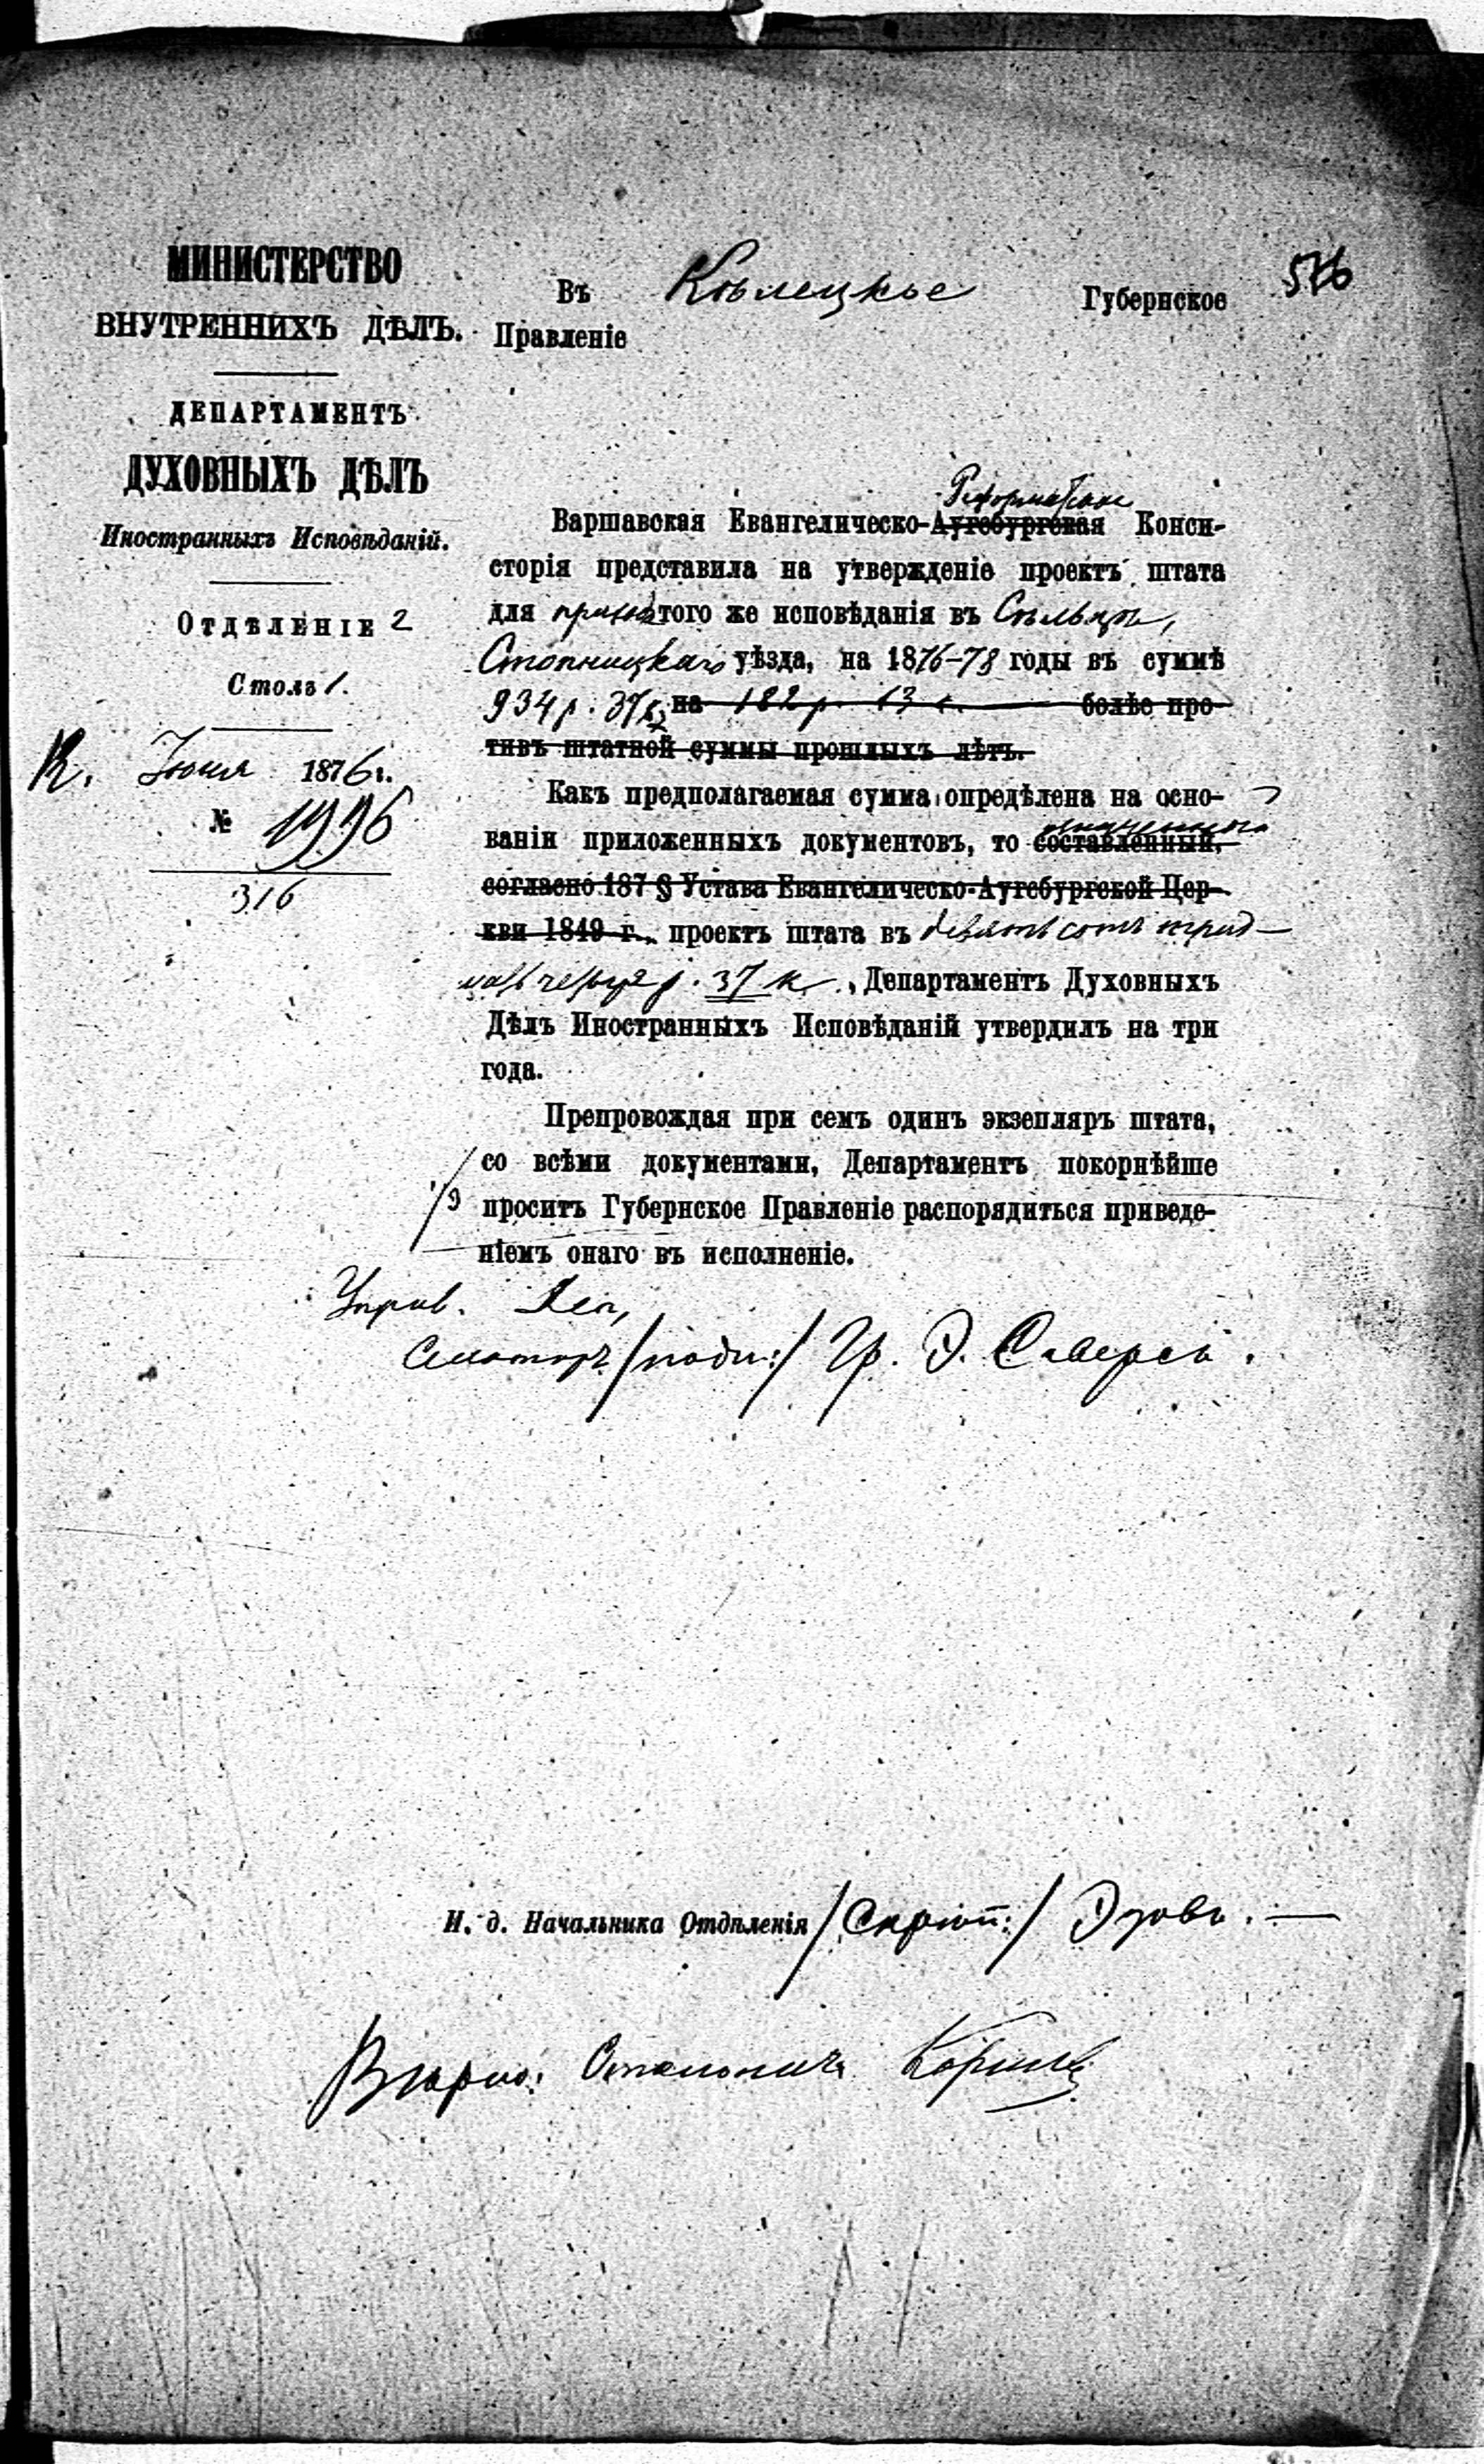 576
МИНИСТЕРСТВО
ВНУТРЕННИХЪ ДѢЛЪ.
ДЕПАРТАМЕНТЪ
ДУХОВНЫХЪ ДѢЛЪ
Иностранныхъ Исповѣданій.
ОТДѢЛЕНІЕ 2
Столъ 1.
Іюня 1876 г.
№ 1996
316
Въ Кѣлецкое Губернское
Правленіе
Реформатская
Варшавская Евангелическо-Аугсбургская Конси-
сторія представила на утвержденіе проектъ штата
для того же исповѣданія въ Сѣльцѣ,
Стопницкаго уѣзда, на 1876-78 годы въ суммѣ
934 р. 37 к, на 182 р. 13 к. болѣе про-
тивъ штатной суммы прошлыхъ лѣтъ.
Какъ предполагаемая сумма опредѣлена на осно-
ваніи приложенныхъ документовъ, то составленный,
согласно 187 § Устава Евангелическо-Аугсбургской Цер-
кви 1849 г., проектъ штата въ девятьсотъ трид-
цать четыре р. 37 к., Департаментъ Духовныхъ
Дѣлъ Иностранныхъ Исповѣданій утвердилъ на три
года.
Препровождая при семъ одинъ экзепляръ штата,
со всѣми документами, Департаментъ покорнѣйше
проситъ Губернское Правленіе распорядиться приведе-
ніемъ онаго въ исполненіе.
Управ. Деп,
Сенаторъ /подп:/ Гр. Э. Сиверсъ.
И. д. Начальника Отдѣленія /Скрѣп:/
Вѣрно: